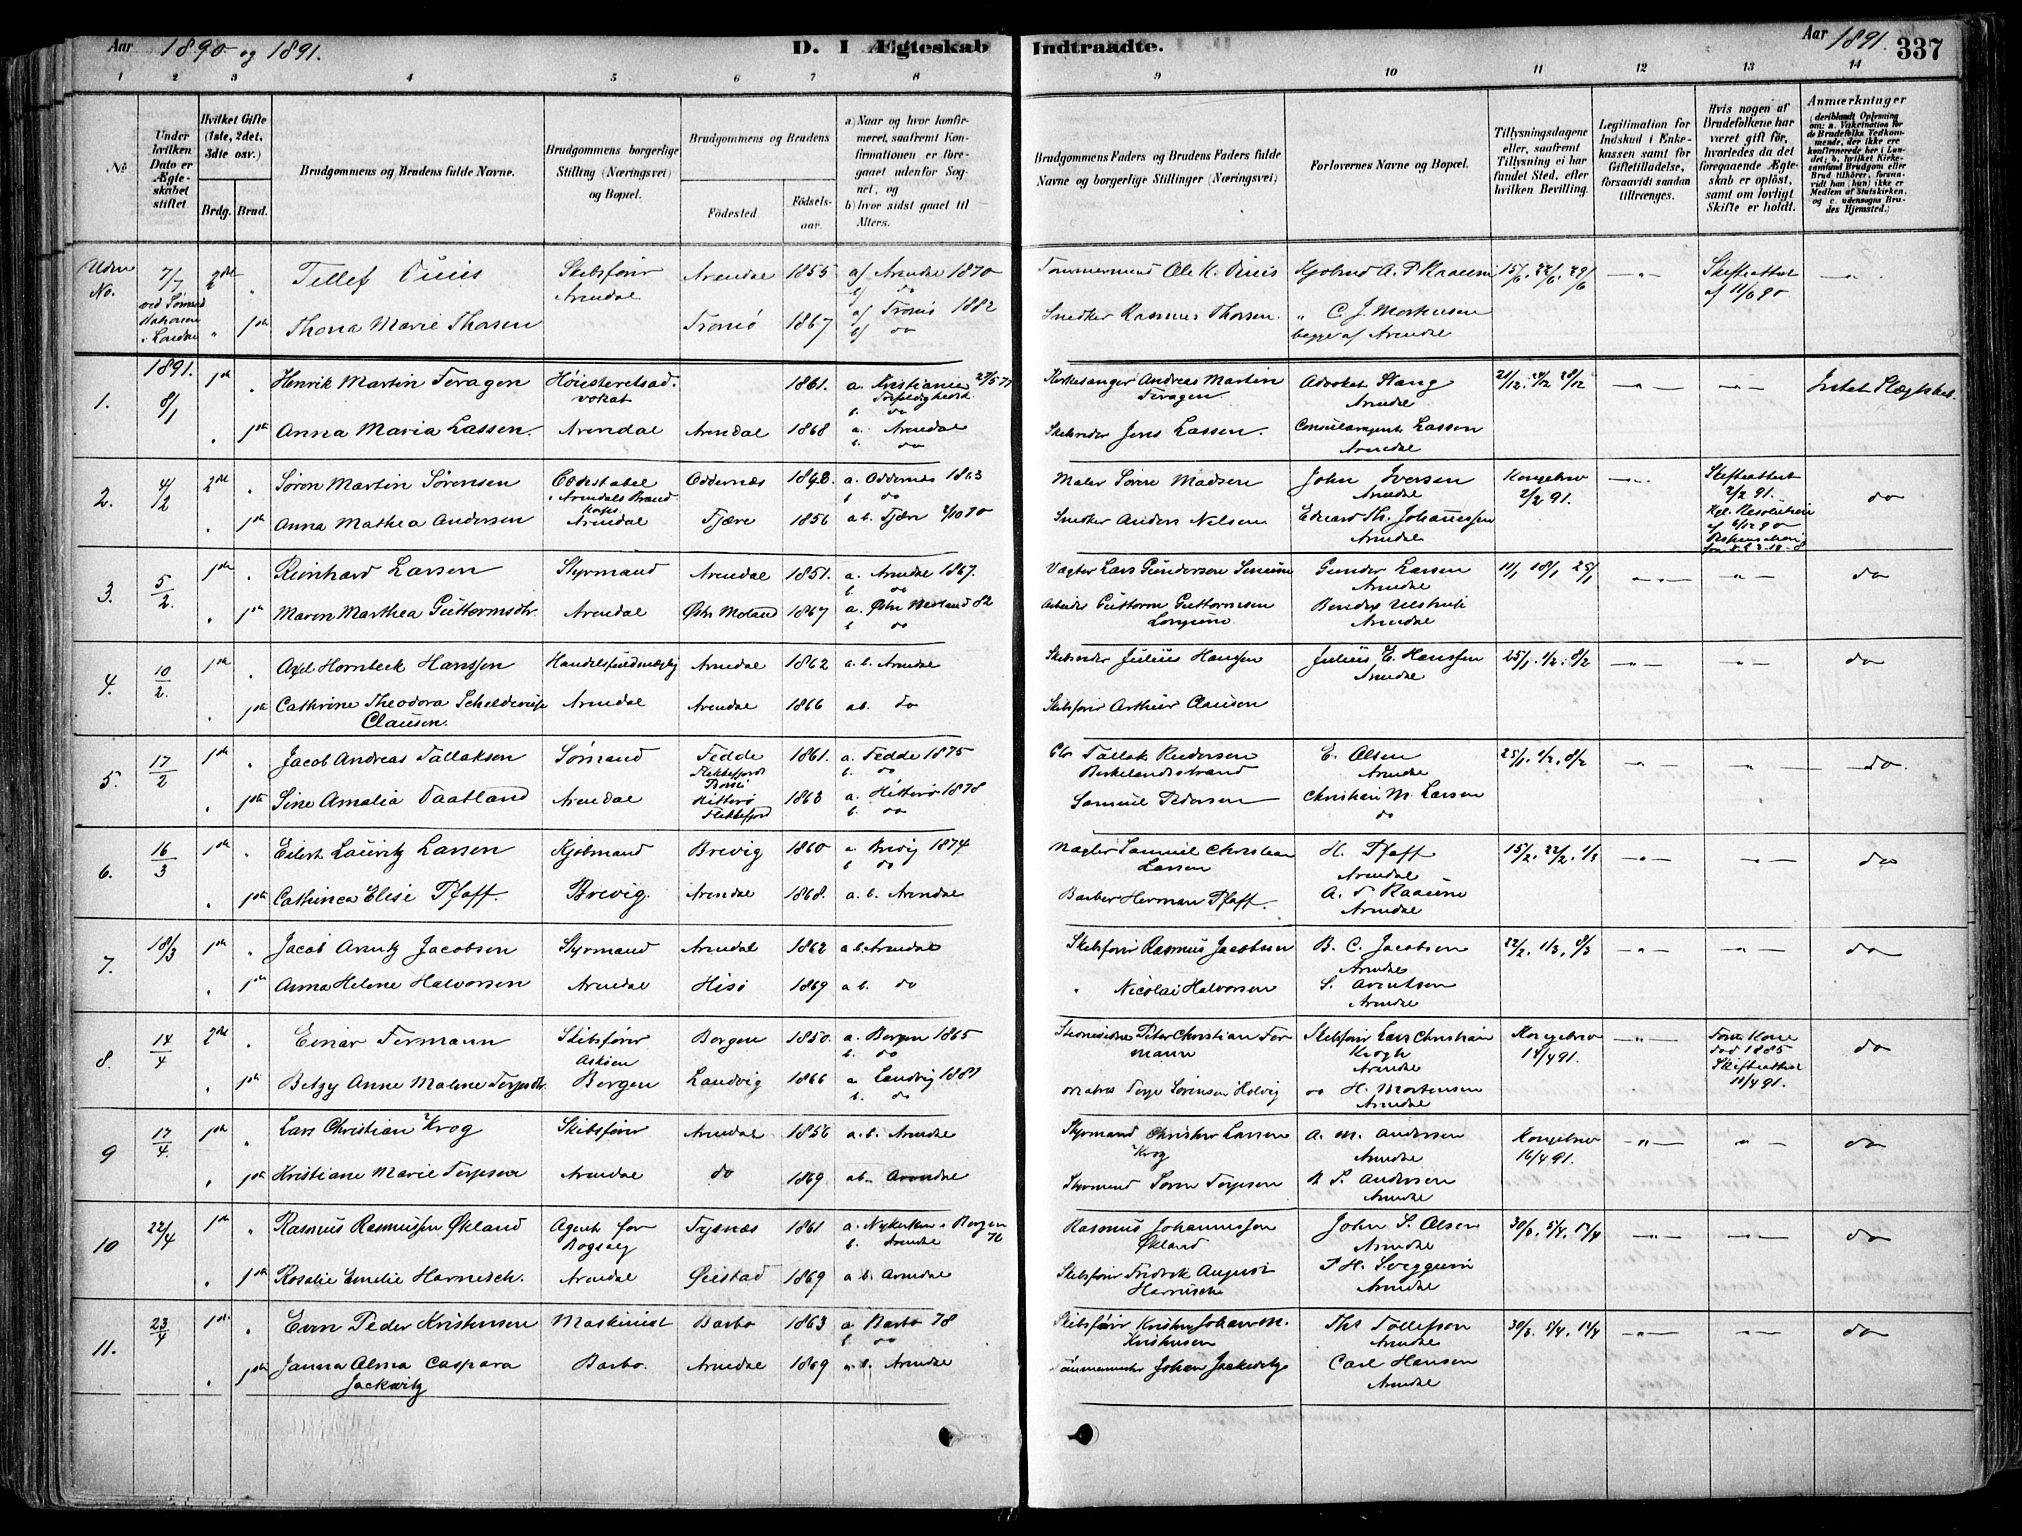 Aar 1890 og 1891.
D. I Ægteskab Indtraadte.
Aar 1891.
337
1 2 3 4 5 6 7 8 9 10 11 12 13 14
No
Under hvilken Dato er Ægteskabet stiftet
Hvilket Gifte (1ste, 2det, 3die osv.)
Brdg. Brud.
Brudgommens og Brudens fulde Navne.
Brudgommens borgerlige Stilling (Næringsvei) og Bopæl.
Brudgommens og Brudens
Födested.
Födselsaar.
a) Naar og hvor konfirmeret, saafremt Konfirmationen er foregaaet udenfor Sognet, og
b) hvor sidst gaaet til Alters.
Brudgommens Faders og Brudens Faders fulde Navne og borgerlige Stillinger (Næringsvei)
Forlovernes Navne og Bopæl.
Tillysningsdagene eller, saafremt Tillysning ei har fundet Sted, efter hvilken Bevilling.
Legitimation for Indskud i Enkekassen samt for Giftetilladelse, forsaavidt saadan tiltrænges.
Hvis nogen af Brudefolkene har været gift för, hvorledes da det foregaaende Ægteskab er oplöst, samt om lovligt Skifte er holdt.
Anmærkninger
Uden No. 7/7 2det " Tellef Duus Skibsfører Arendal Arendal 1855 a/ Arendal 1870 b/ do Tømmermand Ole K. Duus Kjøbmd A. T. Raaum 15/6, 22/6, 29/6 -"- Skifteattest af 11/6 90 -"-
" 1ste Thona Marie Thorsen Tromø 1867 a/ Tromø 1882 b/ do Snedker Rasmus Thorsen. " C. J. Mortensen begge af Arendal
1891.
1. 8/1 1ste " Henrik Martin Feragen Høiesteretsadvokat 1861. a. Kristiania b. do Kirkesanger Andreas Martin Feragen Advokat Stang Arendal 21/12. 28/12 -"- -"- Intet Slægtskab.
" 1ste Anna Maria Lassen. Arendal Arendal 1868 a. Arendal b. do Skibsreder Jens Lassen. Consularagent Lassen Arendal
2. 4/2 2det " Søren Martin Sørensen Constabel i Arendals Brandkorps Oddernæs 1848. a. Oddernæs 1863 b do Maler Søren Madsen John Iversen Arendal Kongebrev 2/2 91. -"- Skifteattest 2/2 91. Kgl. Resolution af 6/12 90 do
" 1ste Anna Mathea Andersen Arendal Fjære 1856 ab. Fjære Snedker Anders Nilsen. Edvard Th. Johannessen Arendal
3. 5/2. 1ste " Reinhard Larsen Styrmand Arendal 1851. a. Arendal 1867. b. do Vægter Lars Gundersen Gunder Larsen Arendal 11/1 18/1 25/1 -"- -"- do
" 1ste Maren Marthea Guttormsdtr. Arendal Østre Moland 1867 a. Østre Moland 82 b do Arbeider Guttorm Guttormsen Longum Arendal
4. 10/2. 1ste " Axel Hornbeck Hanssen Handelsfuldmægtig Arendal 1862 a.b. Arendal Skibsreder Julius Hanssen Julius E. Hanssen Arendal 25/1. 1/2. 8/2 -"- -"- do
" 1ste Cathrine Theodora Schelderup Clausen. Arendal Arendal 1866 ab. do Skibsfører Arthur Clausen
5. 17/2 1ste " Jacob Andreas Tallaksen Sømand Fedde Flekkefjord 1861. a. Fedde 1875 b. do Tallak Birkelandsstrand E. Olsen Arendal 25/1, 1/2, 8/2 -"- -"- do.
" 1ste Sine Amalia Vaatland Arendal Hitterø Flekkefjord 1863 a. Hitterø 1878 b. do Samuel Pedersen Christian M. Larsen do
6. 16/3 1ste " Eilert Lauritz Larsen Kjøbmand Brevig 1860 a Brevig 1874 b do Vægter Samuel Christian Larsen H. Pfaff Arendal 15/2. 22/2. 1/3 -"- -"- do
" 1ste Cathinca Elise Pfaff. Brevig. Arendal 1868. a. b. Arendal Barber Herman Pfaff. A. T. Raaum Arendal
7. 18/3 1ste " Jacob Arentz Jacobsen Styrmand Arendal 1862 ab. Arendal Skibsfører Rasmus Jacobsen B. C. Jacobsen Arendal 22/2. 1/3. 8/3 -"- -"- do
" 1ste Anna Helene Halvorsen Arendal Hisø 1869 a b. do " Nicolai Halvorsen S. Arentsen Arendal
8. 14/4 2det " Einar Fermann Skibsfører Askøen Bergen 1850. a. Bergen 1865 b. do Peter Christian Fermann Skibsfører Lars Christian Krogh Arendal Kongebrev 14/4 91. -"- Forr. Kone død 1885 Skifteattest 11/4 91. do
" 1ste Betzy Anne Malene Terjesdtr. Bergen Landvig 1866 a Landvig 1881 b. do Matros Terje Sørensen Holvig do H. Mortensen Arendal
9 17/4. 1ste " Lars Christian Krog Skibsfører Arendal 1856 a. b. Arendal Styrmand Christen Larsen Krog A. M. Andersen Arendal Kongebrev 16/4 91. -"- " do
" 1ste Kristiane Marie Torpsen Arendal do 1869 ab. Arendal Styrmand Søren Torpsen S. Andersen Arendal
10 22/4 1ste " Rasmus Rasmussen Økland Agent for Bogsalg Tysnæs 1861 a. Nykirken i Bergen 76 b. Arendal Rasmus Johannessen Økland John S. Olsen Arendal 30/3. 5/4. 12/4 -"- -"- do
" 1ste Rosalie Emelie Harnisch. Arendal Øiestad 1869 a b. Arendal Skibsfører Fredrik August Harnisch Arendal
11. 23/4 1ste " Even Peder Kristensen Maskinist Barbo 1863 a Barbo 78 b do Skibsfører Kristen Johan M. Kristensen Ths Tollefsen Arendal 30/3. 5/4. 12/4 -"- -"- do
" 1ste Janna Alma Caspara Jackwitz Barbo. Arendal 1869 a. b. Arendal Johan Jackwitz Carl Hansen Arendal